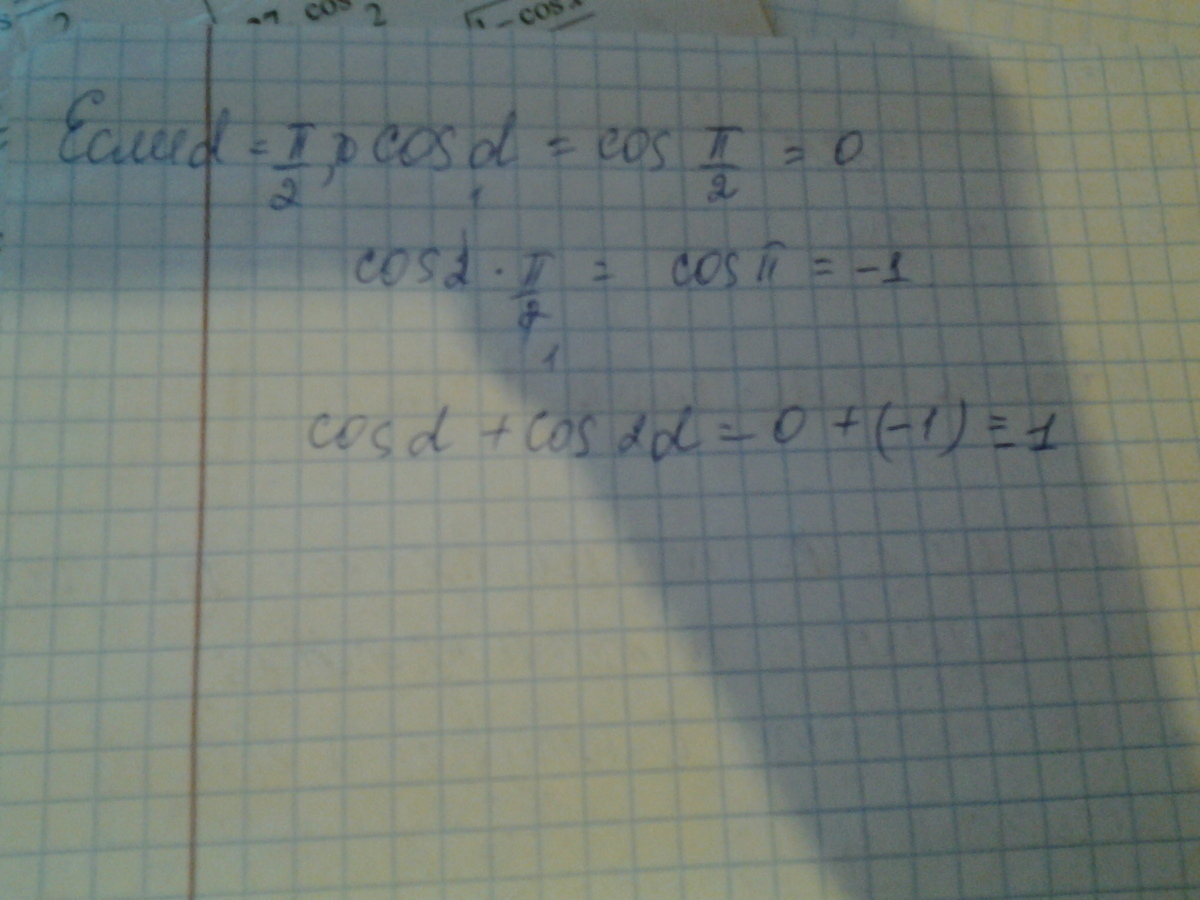 cos 2 √1-cos
Если α = π/2, cos α = cos π/2 = 0
cos 2 · π/2 = cos π = -1
1
cos α + cos 2α = 0 + (-1) = 1